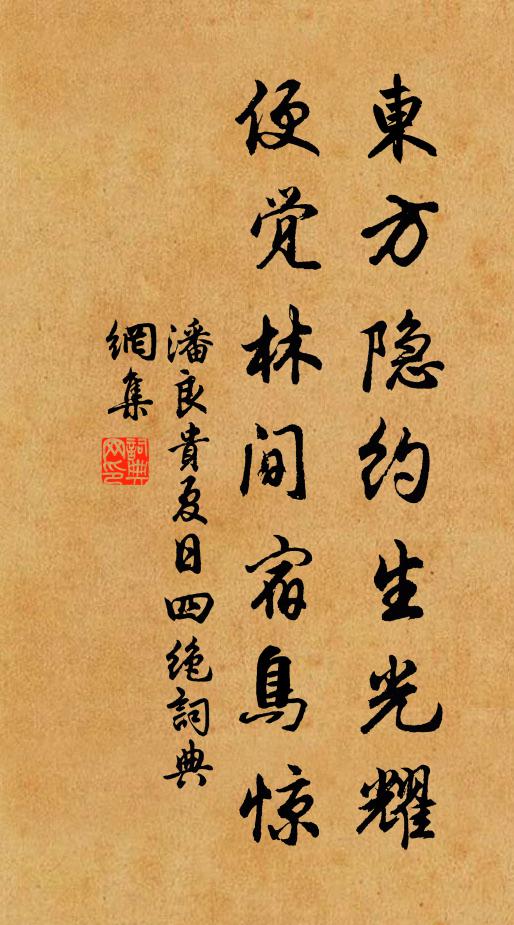 東方隐约生光耀
便觉林间宿鳥惊
潘良貴夏日四绝詞典
網集
詞典网印